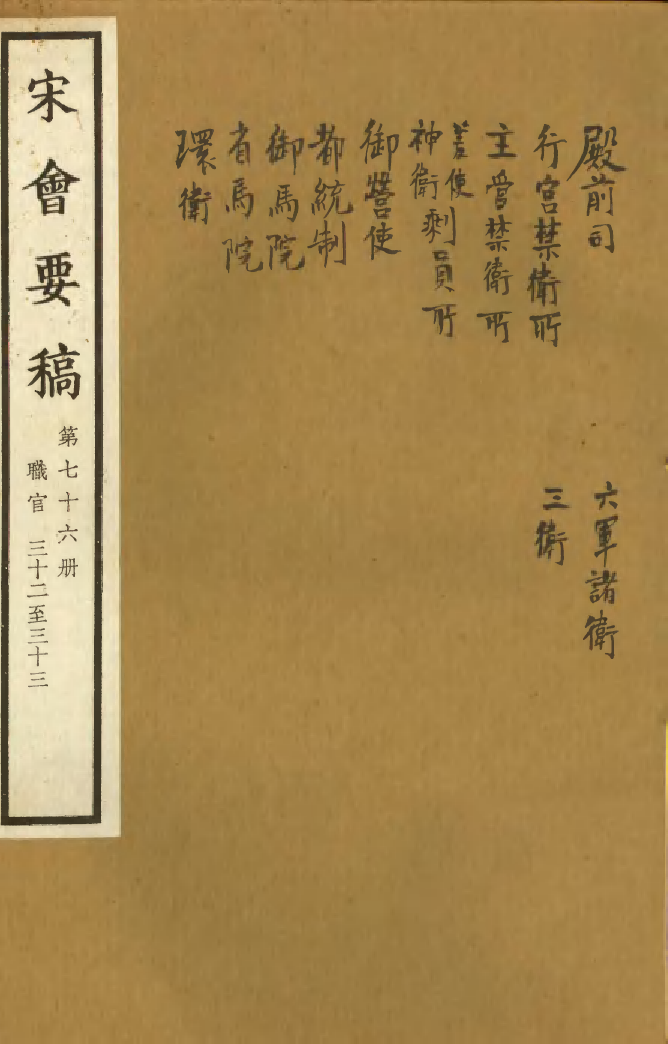 殿前司
行宮禁衛所
主管禁衛所
差使
神衛剩員所
御營使
都統制
御馬院
省馬院
環衛
六軍諸衛
三衛
宋會要稿
第七十六册
職官 三十二至三十三